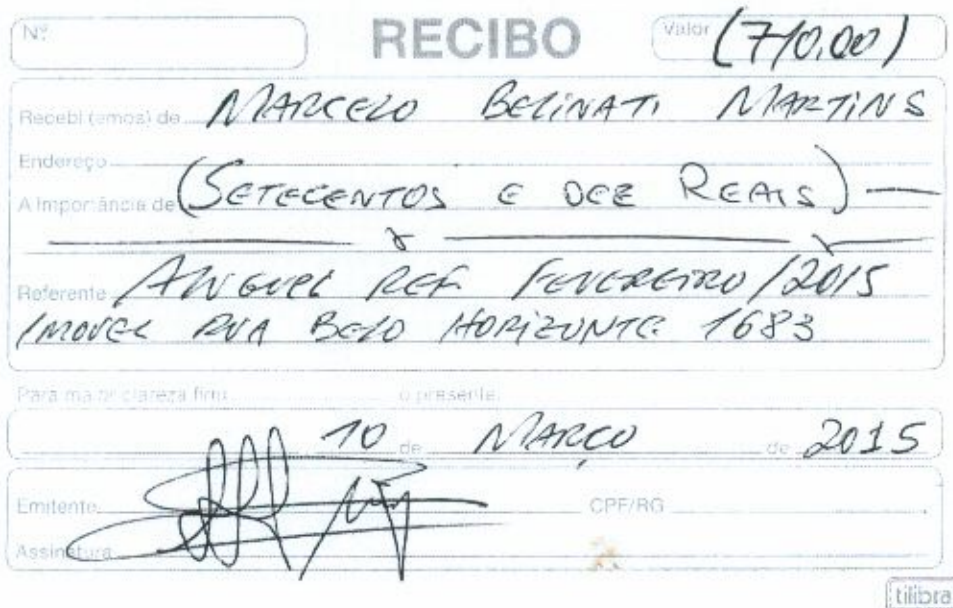 Nº
RECIBO
Valor (710,00)
Recebi (emos) de MARCELO BELINATI MARTINS
Endereço
A Importância de (SETECENTOS E DEZ REAIS)
Referente ALUGUEL REF. FEVEREIRO/2015
IMOVEL RUA BELO HORIZONTE 1683
Para maior clareza firmo o presente.
10 de MARÇO de 2015
Emitente CPF/RG
Assinatura
tilibra